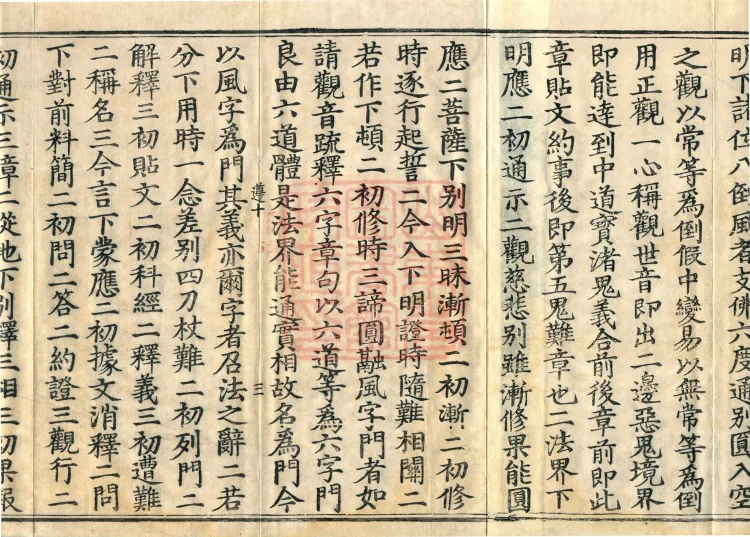 明下訶位八倒風者支佛六度通别圓入空
之觀以常等為倒假中變易以無常等為倒
用正觀一心稱觀世音即出二邊惡鬼境界
即能達到中道寶渚鬼義合前後章前即此
章貼文約事後即第五鬼難章也二法界下
明應二初通示二觀慈悲别雖漸修果能圓
應二菩薩下别明三昧漸頓二初漸二初修
時逐行起誓二今入下明證時隨難相關二
若作下頓二初修時三諦圓融風字門者如
請觀音䟽釋六字章句以六道等為六字門
良由六道體是法界能通實相故名為門今
遵十
三
以風字為門其義亦爾字者召法之辭二若
分下用時一念差别四刀杖難二初列門二
解釋三初貼文二初科經二釋義三初遭難
二稱名三今言下蒙應二初據文消釋二問
下對前料簡二初問二答二約證三觀行二
初通示三章二從地下别釋三相三初果報